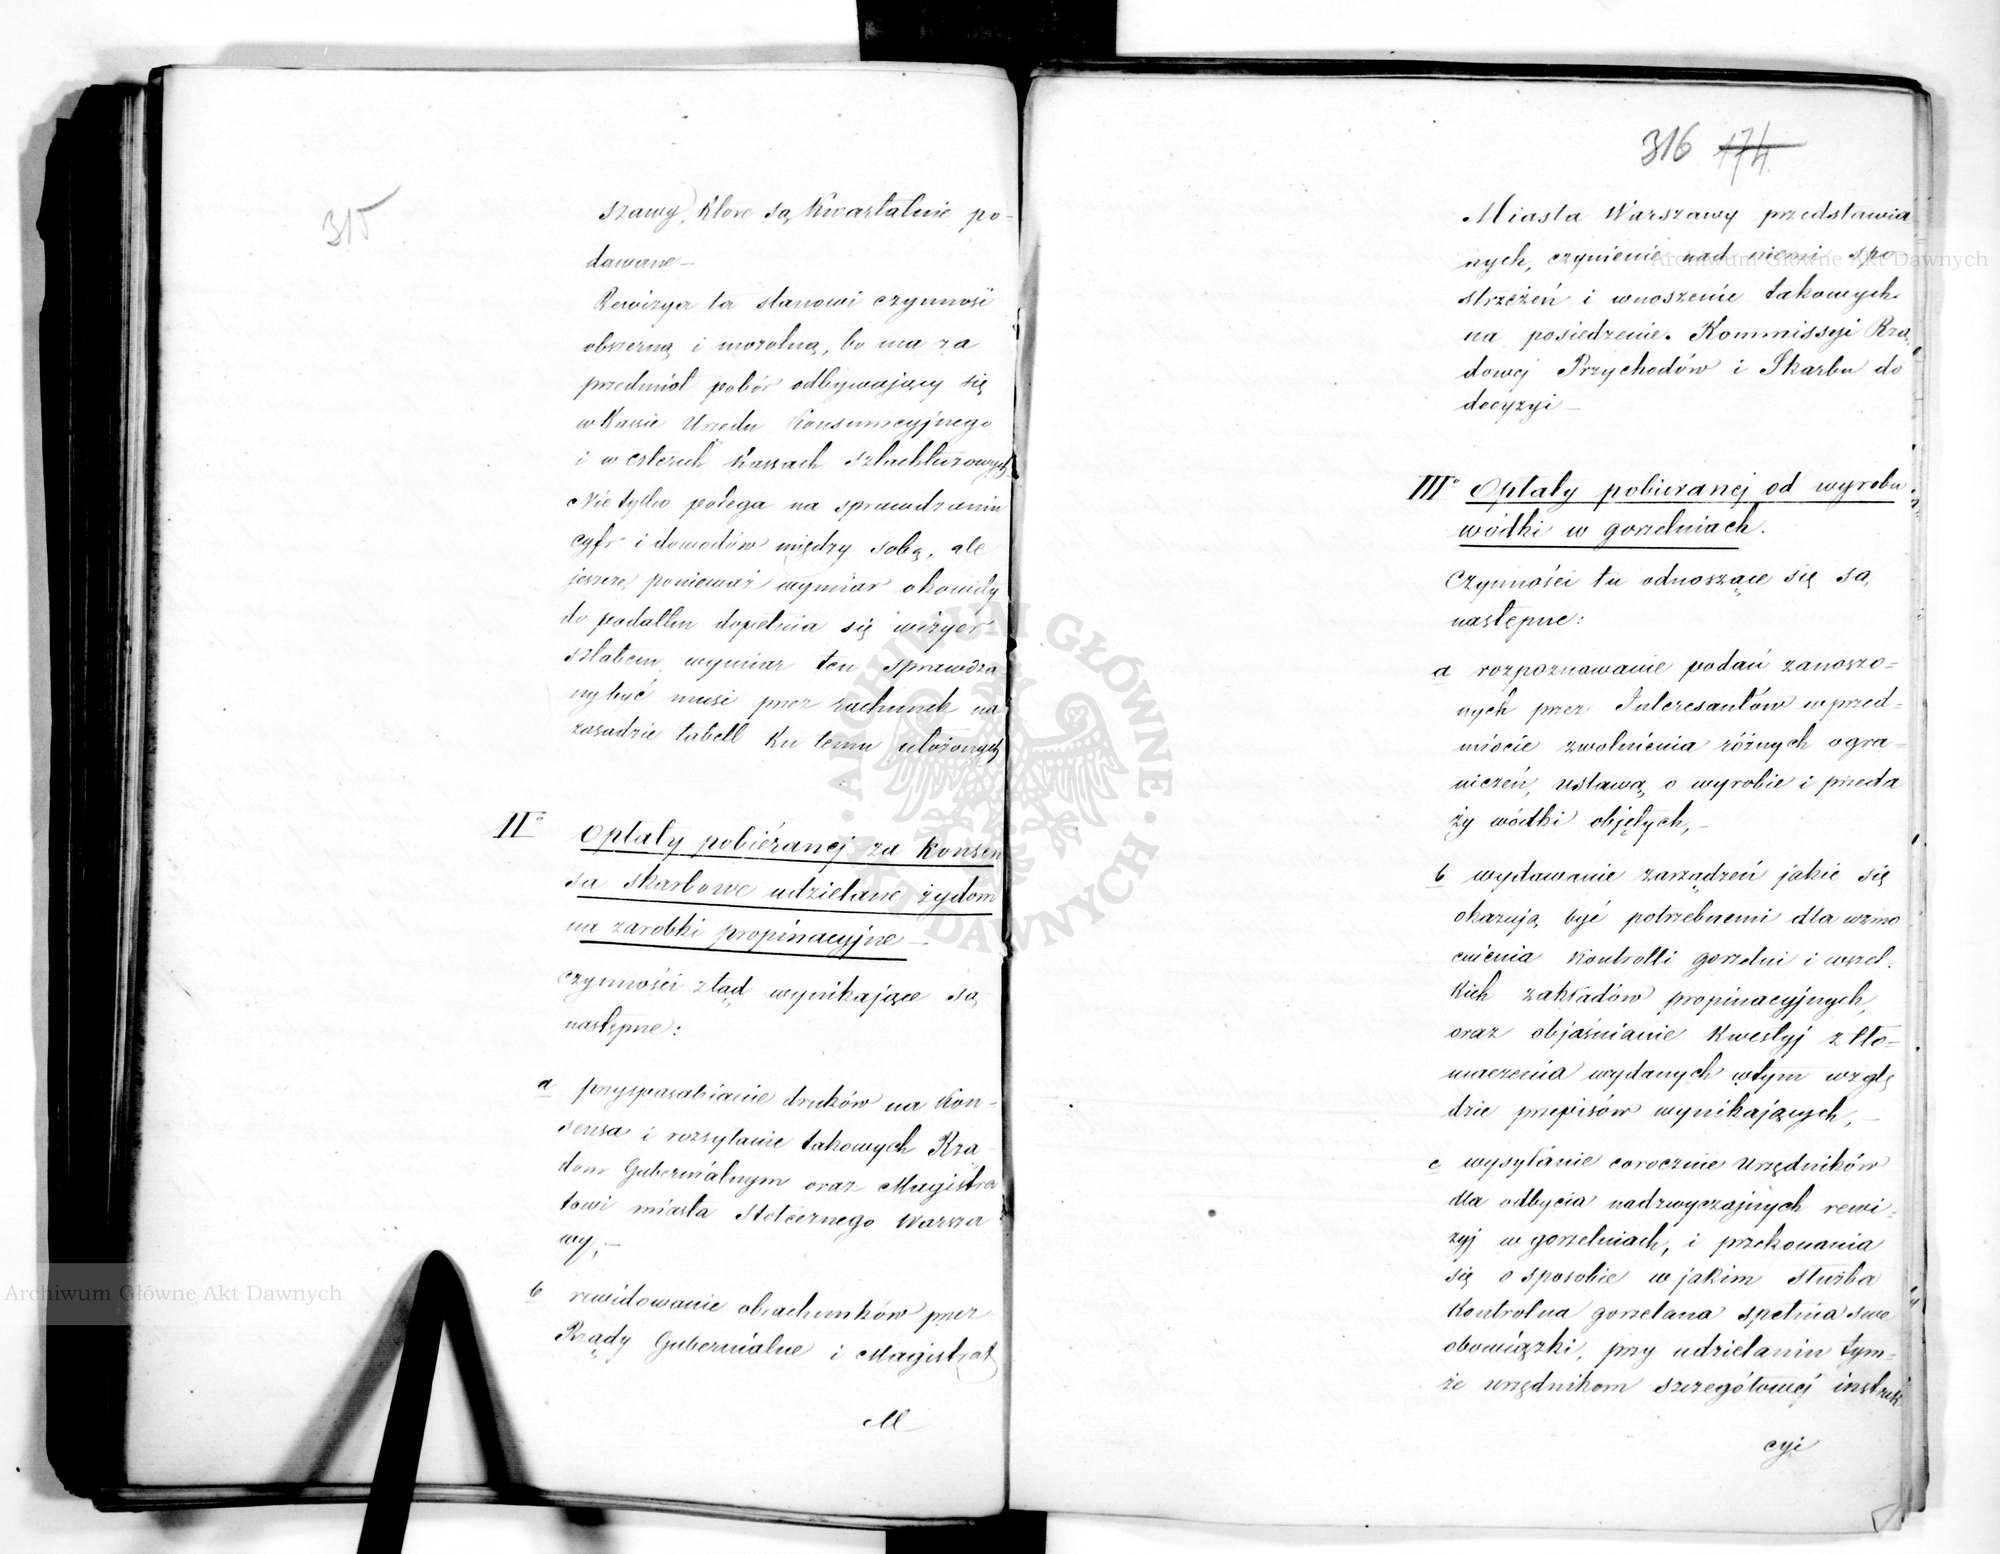 315
szawy, które są kwartalnie po-
dawane —
Rewizya ta stanowi czynność
obszerną i mozolną, bo ma za
przedmiot pobór odbywający się
w Kassie Urzędu Konsumcyjnego
i w czterech kassach szlachtuzowych
Nie tylko polega na sprawdzaniu
cyfr i dowodów między sobą, ale
jeszcze, ponieważ wymiar okowity
do podatku dopełnia się wizyer
sztabem, wymiar ten sprawdza
ny być musi przez rachunek na
zasadzie tabell ku temu ułożonych
IIo Opłaty pobiéranej za konsen
sa skarbowe udzielane żydom
na zarobki propinacyjne —
czynności ztąd wynikające są
następne:
a przysposabianie druków na kon-
sensa i rozsyłanie takowych Rzą-
dom Gubernialnym oraz Magistra
towi miasta Stołecznego Warsza
wy, —
b rewidowanie obrachunków przez
Rządy Gubernialne i Magistrat
M
316 174
Miasta Warszawy przedstawia
nych, czynienie nad niemi spo
strzeżeń i wnoszenie takowych
na posiedzenie Kommissyi Rzą
dowej Przychodów i Skarbu do
decyzyi —
IIIo Opłaty pobieranej od wyrobu
wódki w gorzelniach.
Czynności tu odnoszące się są
następne:
a rozpoznawanie podań zanoszo=
nych przez Interesantów w przed=
miocie zwolnienia różnych ogra=
niczeń, ustawą o wyrobie i przeda
ży wódki objętych, —
b wydawanie zarządzeń jakie się
okazują być potrzebnemi dla wzmo
cnienia kontrolli gorzelni i wszel-
kich zakładów propinacyjnych,
oraz objaśnianie kwestyj z tło-
maczenia wydanych w tym wzglę
dzie przepisów wynikających, —
c wysyłanie corocznie urzędników
dla odbycia nadzwyczajnych rewi=
zyj w gorzelniach, i przekonania
się o sposobie w jakim służba
kontrolna gorzelana spełnia swe
obowiązki, przy udzielaniu tym=
że urzędnikom szczegółowej instruk
cyi
Archiwum Główne Akt Dawnych
Archiwum Główne Akt Dawnych
ARCHIWUM GŁÓWNE AKT DAWNYCH